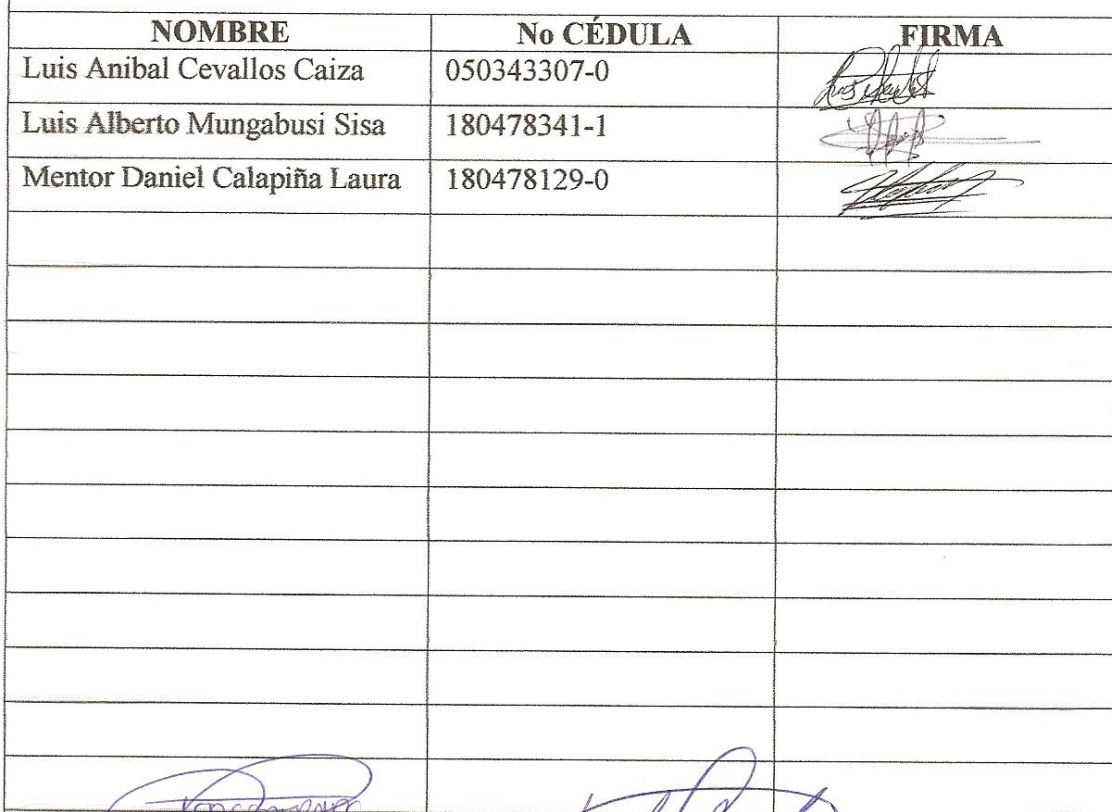 NOMBRE No CÉDULA FIRMA
Luis Anibal Cevallos Caiza 050343307-0
Luis Alberto Mungabusi Sisa 180478341-1
Mentor Daniel Calapiña Laura 180478129-0